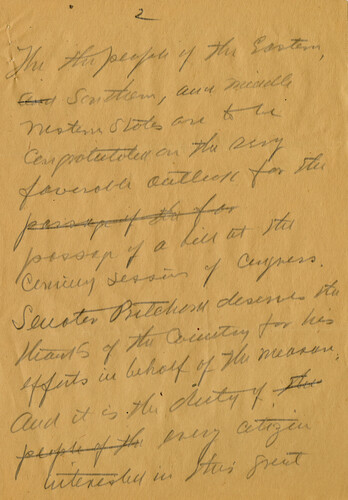 2
The the people of the Eastern,
and Southern, and middle
Western States are to be
Congratulated on the very
favorable outlook for the
passage of the for
passage of a bill at the
coming session of Congress.
Senator Pritchard deserves the
thanks of the Country for his
efforts in behalf of the measure,
And it is the duty of the
people of the every citizen
interested in this great